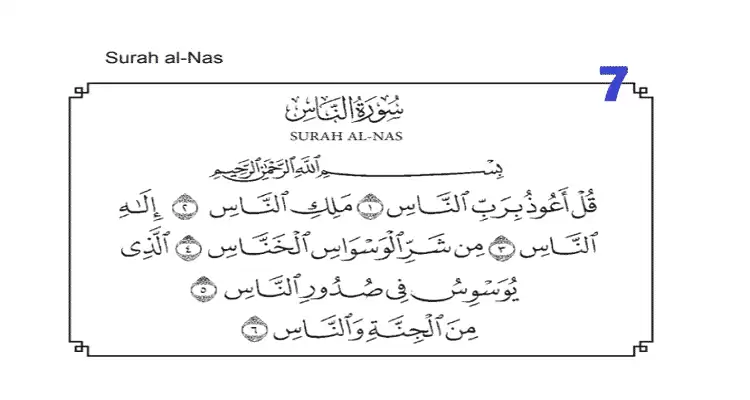 Surah al-Nas
7
سُورَةُ النَّاسِ
SURAH AL-NAS
بِسْمِ اللَّهِ الرَّحْمَٰنِ الرَّحِيمِ
قُلْ أَعُوذُ بِرَبِّ ٱلنَّاسِ ١ مَلِكِ ٱلنَّاسِ ٢ إِلَٰهِ
ٱلنَّاسِ ٣ مِن شَرِّ ٱلْوَسْوَاسِ ٱلْخَنَّاسِ ٤ ٱلَّذِى
يُوَسْوِسُ فِى صُدُورِ ٱلنَّاسِ ٥
مِنَ ٱلْجِنَّةِ وَٱلنَّاسِ ٦